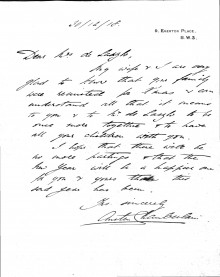 31/12/18.
9, EGERTON PLACE,
S.W.3.
Dear Mrs de Laszlo,
My wife & I are very
glad to know that your family
was reunited for Xmas & can
understand all that it means
to you & to Mr de Laszlo to be
once more together & to have
all your children with you.
I hope that there will be
no more partings & that the
New Year will be a happier one
for you & yours than this
sad year has been.
Yrs sincerely
Austen Chamberlain